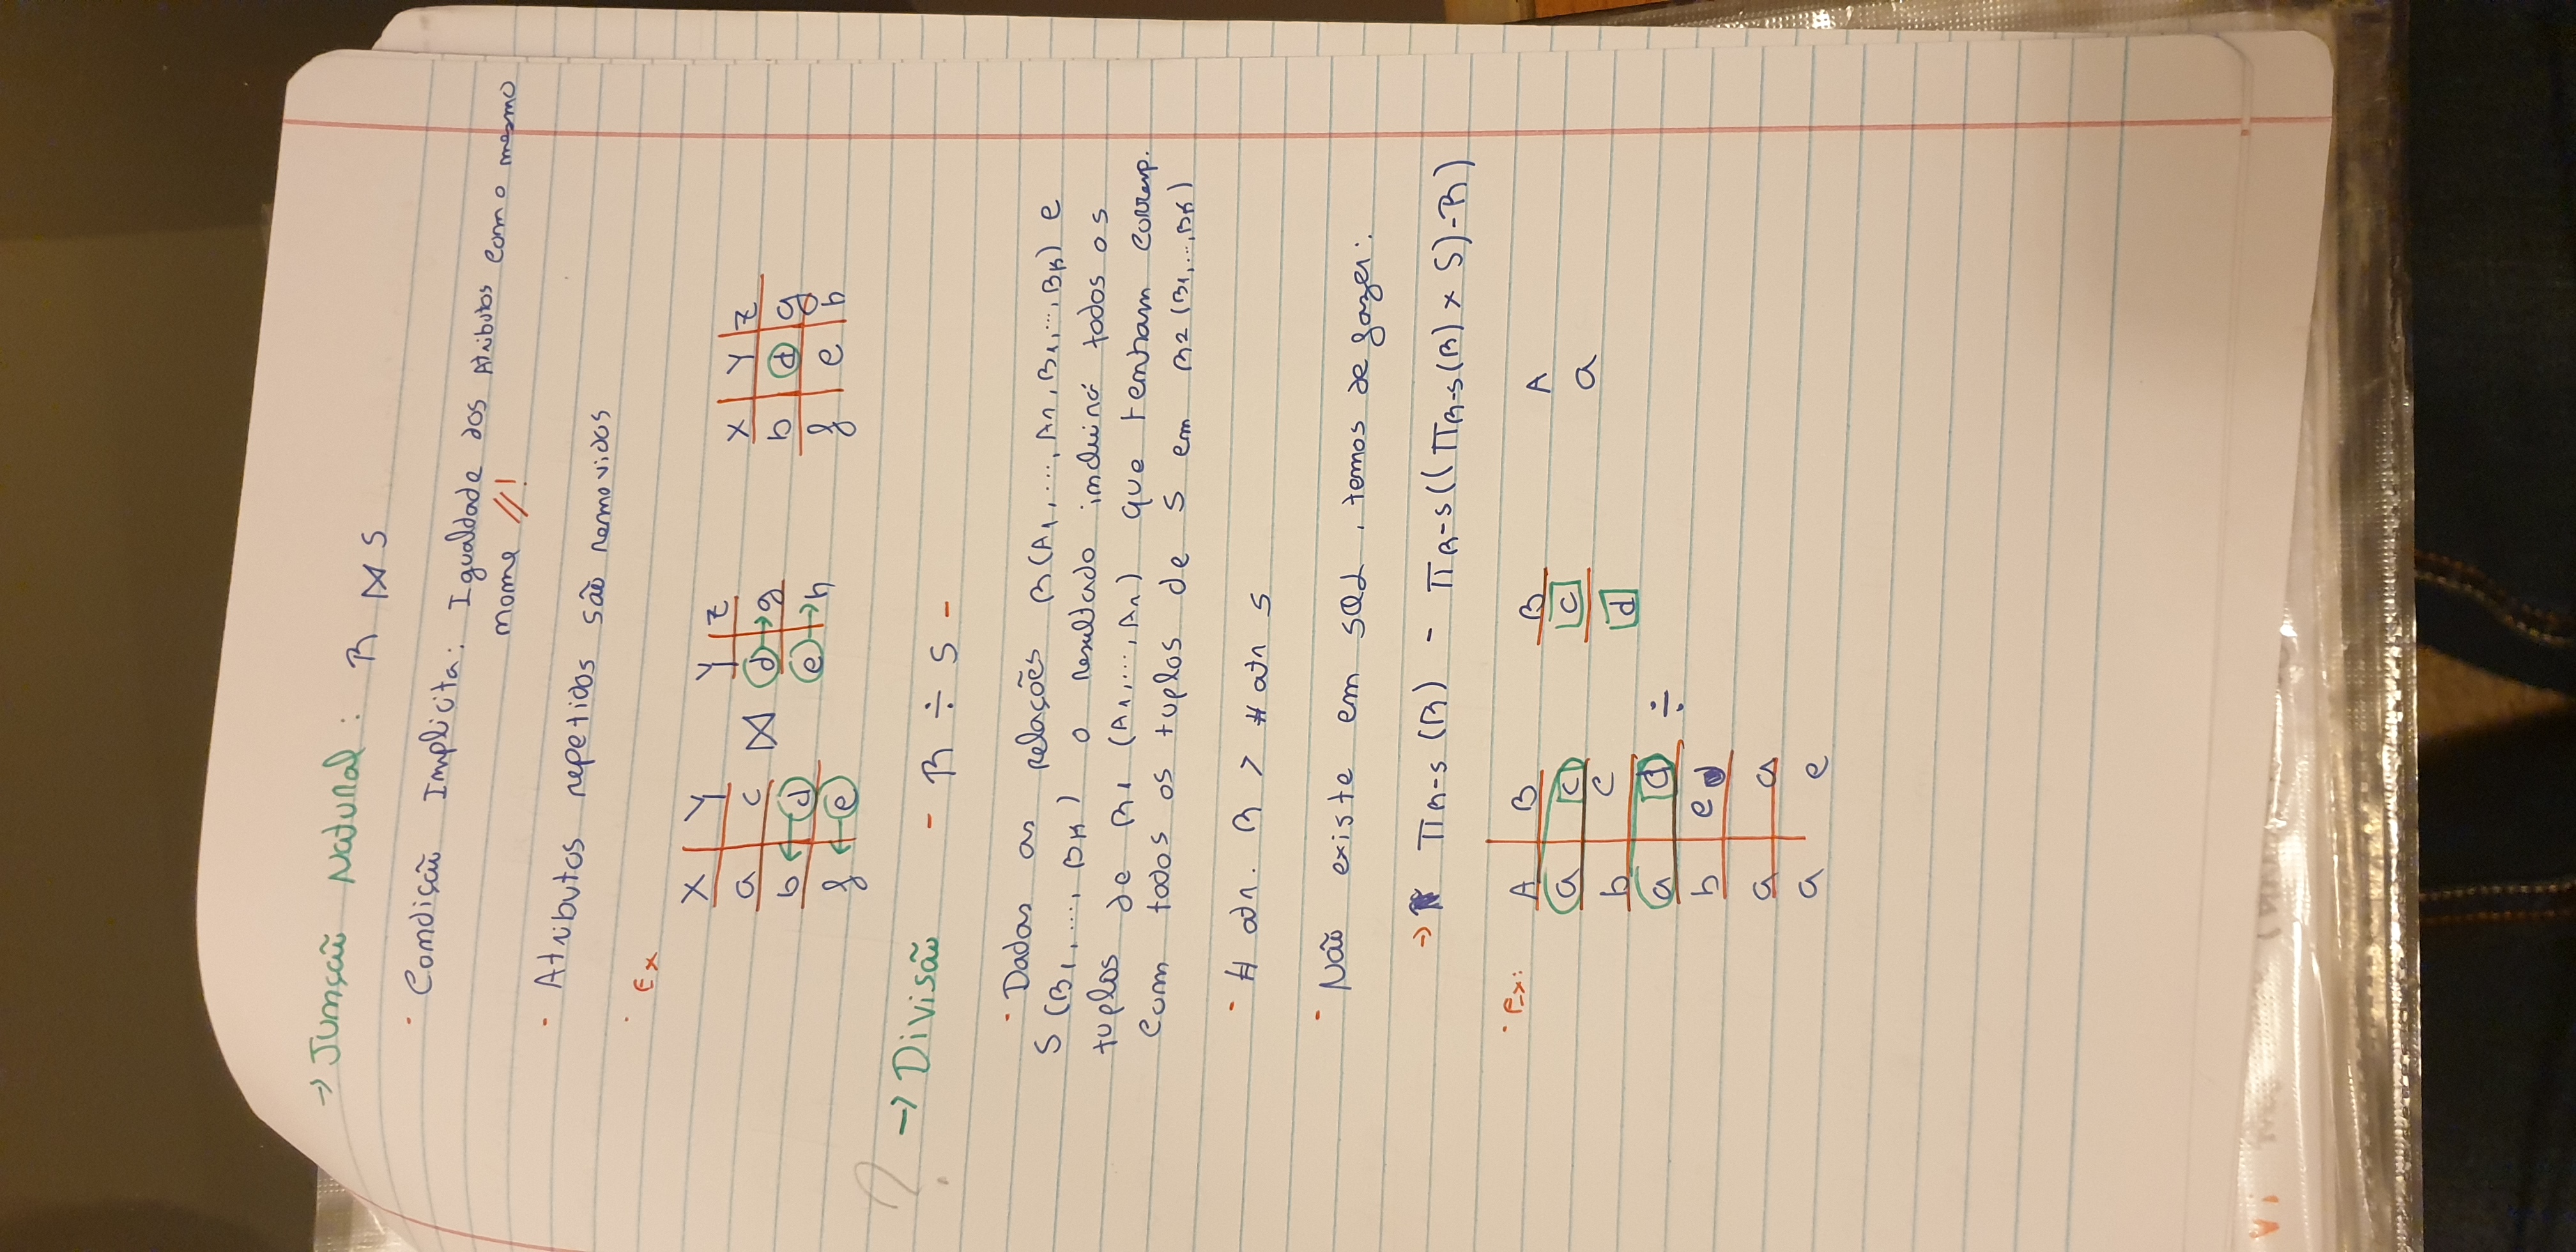 → Junção Natural: R ⋈ S
· Condição Implicita: Igualdade dos Atributos com o mesmo
nome //!
- Atributos repetidos são removidos
· Ex
X | Y     Y | Z     X | Y | Z
a | c ⋈ d → g     b | d | g
b ← d     e → h     f | e | h
f ← e
? → Divisão - R ÷ S -
· Dadas as relações R(A1,...,An,B1,...,Bk) e
S(B1,...,Bk) o resultado incluirá todos os
tuplos de R1 (A1,...,An) que tenham corresp.
com todos os tuplos de S em R2(B1,...,Bk)
- # atr. R > # atr S
- Não existe em SQL, temos de fazer:
→ π R-S (R) - π R-S((π R-S(R) × S)-R)
· Ex:
A | B     B     A
a | c     c     a
b | c     d
a | d ÷
b | e
a | a
a | e